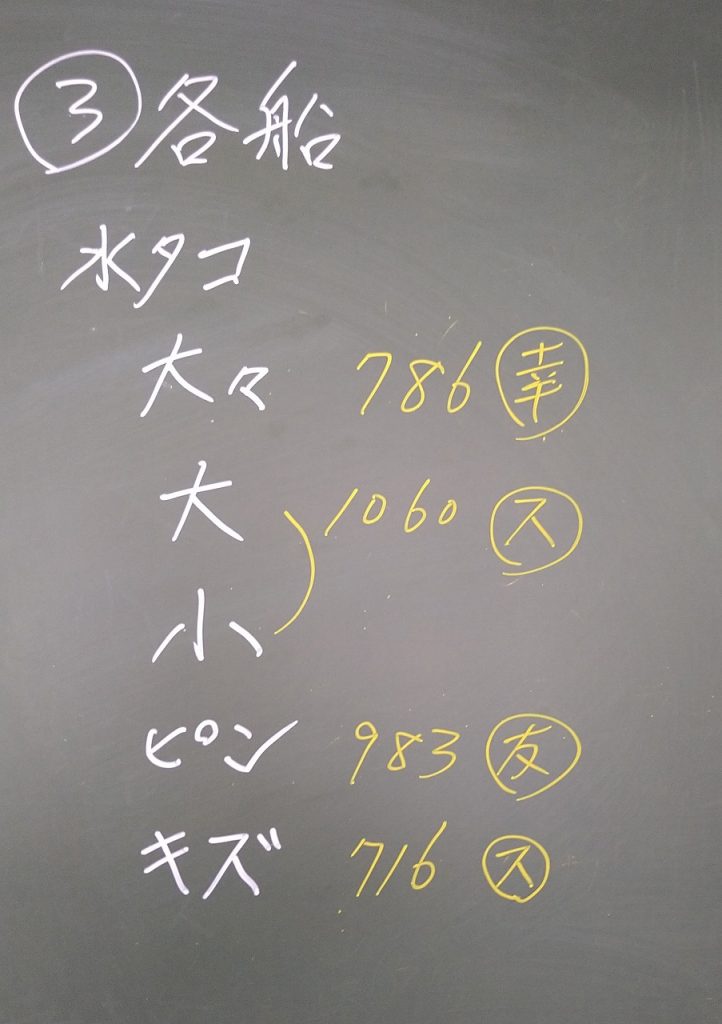 ③各船
水タコ
大々 786 ㊵
大 1060 ス
小
ピン 983 友
キズ 716 ス